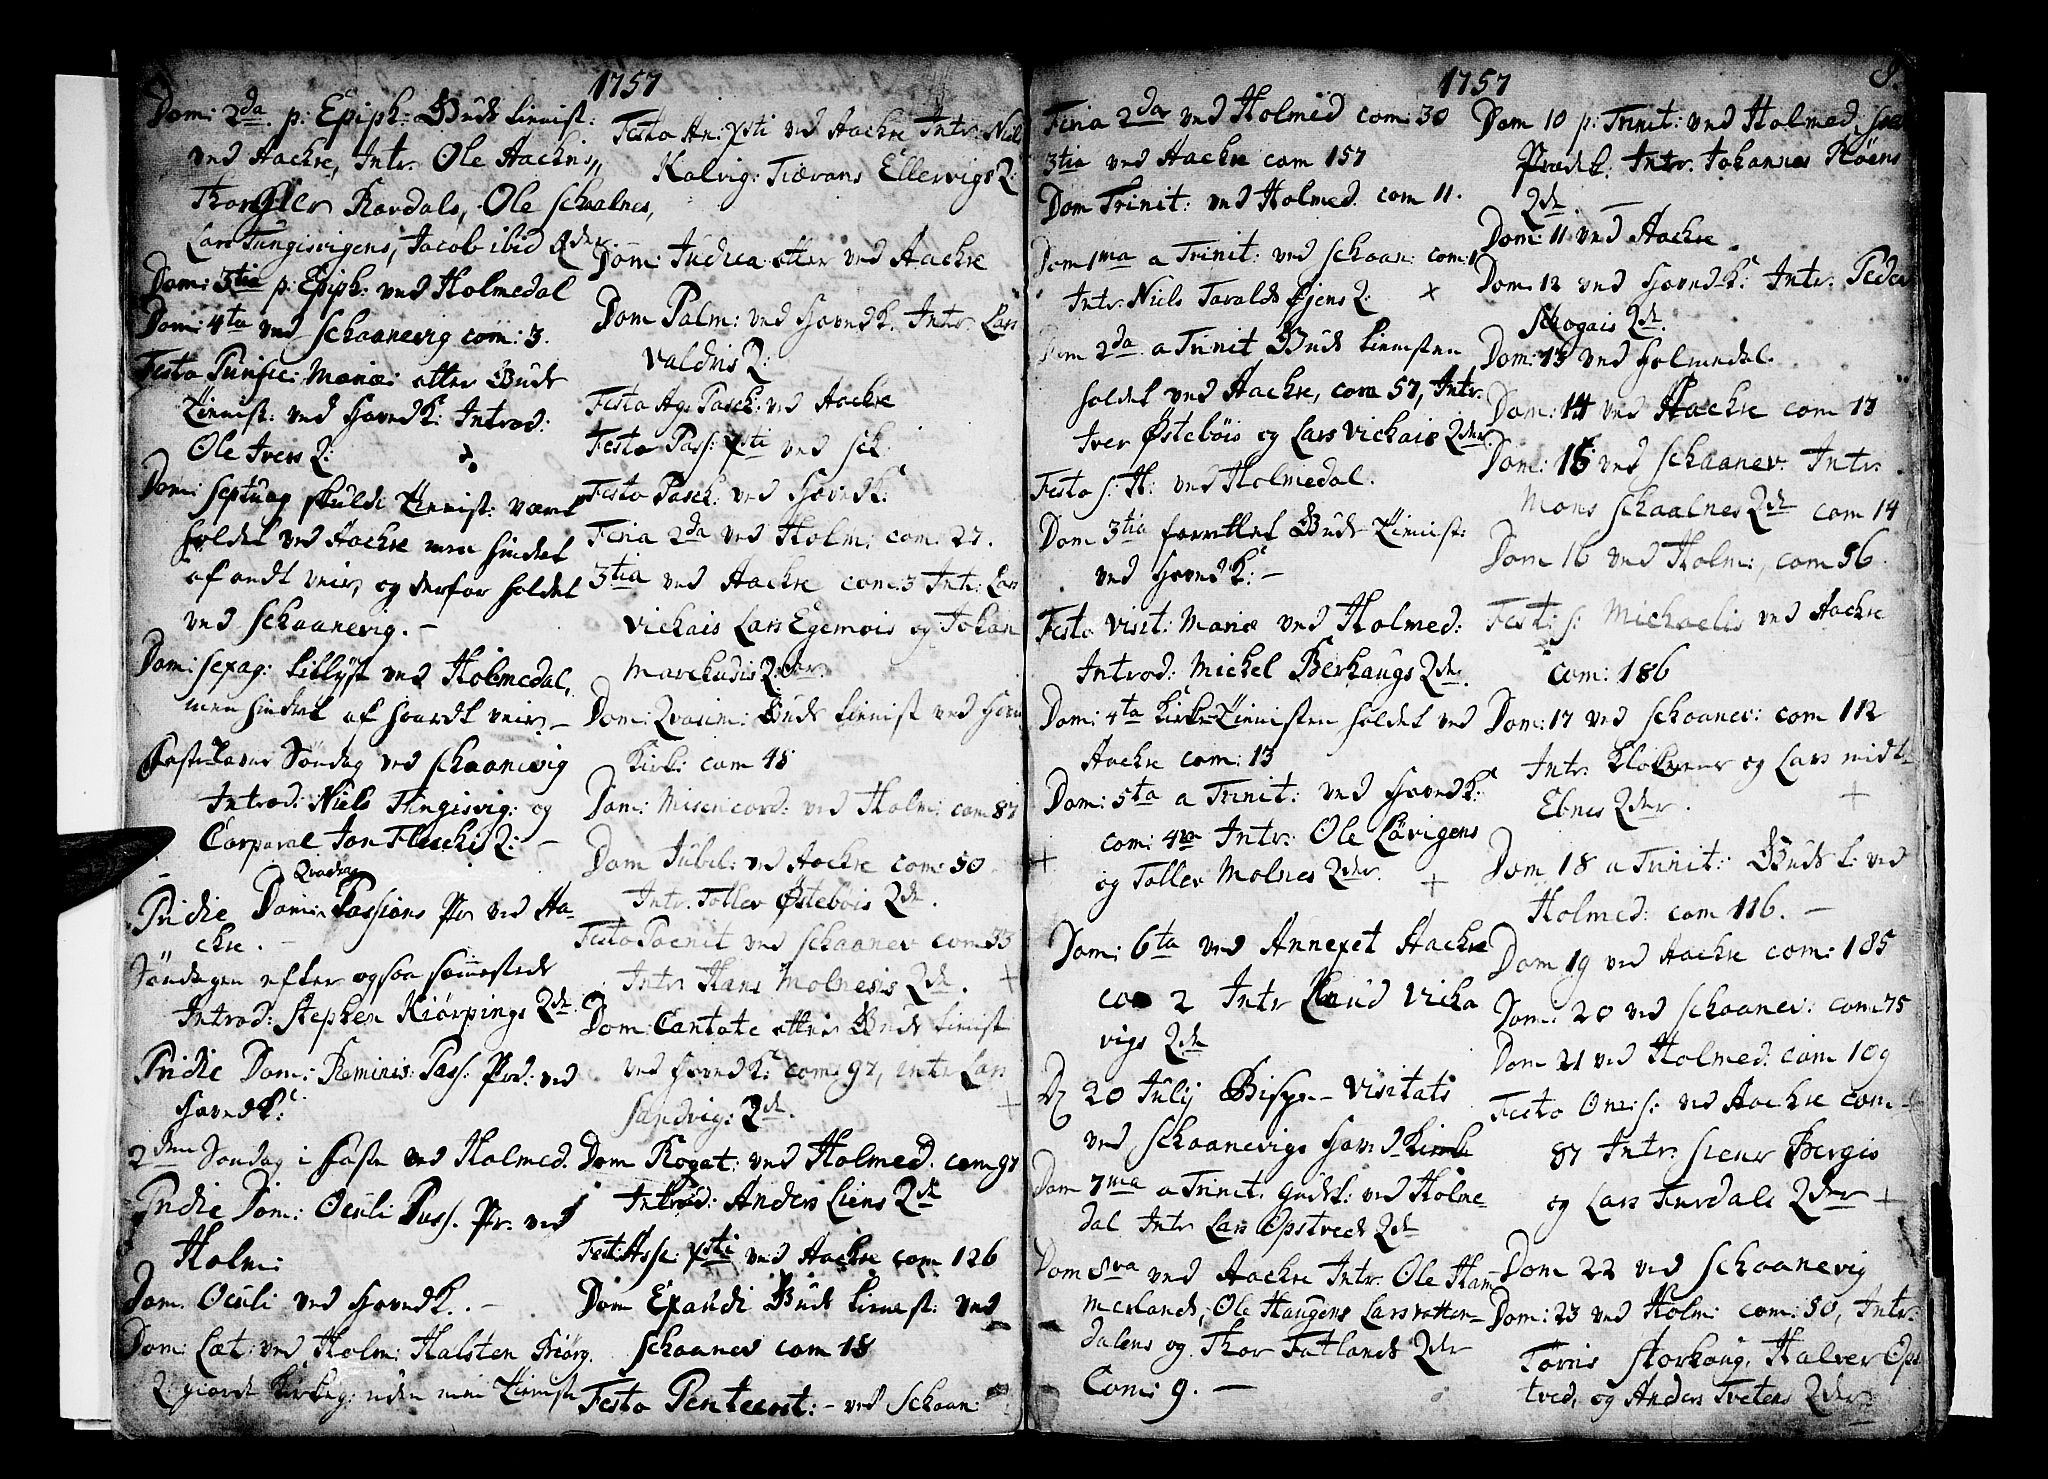 1757
Dom: 2da p: Epiph: Guds tienist:
ved Aachre, Intr. Ole Aachris,
Rardals, Ole Schaalnes,
Lars Tungisvigens, Jacob ibid Qder.
Dom: 3tia p: Epiph: ved Holmedal
Dom: 4ta ved Schaanevig com: 3.
Festo Purific: Mariæ: atter Guds
Tienist: ved HovedK: Introd:
Ole Ivers Q:
Dom: Septuag skulde Tienist: vært
holdet ved Aachre men hindret
af ondt veir, og derfor holdet
ved Schaanevig. –
Dom: Sexag: tillyst ved Holmedal,
men hindret af haardt veir. –
Faste Søndag ved Schaanevig
Introd: Niels Tungisvig: og
Corporal Jon Q: –
Qvadrag
Pridie Dom: Passions Pr ved Aa-
chre. –
Søndagen efter ogsaa sammesteds
Introd: Stephen Kiørpings Qde
Pridie Dom: Reminis: Pass: Præd: ved
HovedK:
2den Søndag i Faste ved Holmed.
Pridie Dom: Oculi Pass. Pr. ved
Holm:
Dom. Oculi ved HovedK. –
Dom: Læt: ved Holm: Halsten Biørg.
Q: giorde Kirkeg: uden min Tieniste
Festo An: Xsti ved Aachre Intr: Niels
Kalvig: Tiærans Ellervigs Q:
Dom: Judica atter ved Aachre
Dom Palm: ved HovedK. Intr. Lars
Valdris Q:
Festo Ag: Pasch: ved Aachre
Festo Pass: Xsti ved Sch:
Festo Pasch: ved HovedK:
Feria 2da ved Holm: com: 27.
3tia ved Aachre com: 3 Intr: Lars
Vichais Lars Egemois og Johan
Marchusis Qder.
Dom: Qvasim: Guds tienist ved Hoved
Kirk: com 45
Dom: Misericord: ved Holm: com 87
Dom Jubil: ved Aachre com: 50
Intr. Tollev Østebøis Qde.
Festo Poenit ved Schaanev com 33
Intr. Hans Molnesis Qde. +
Dom: Cantate atter Guds tienist
ved HovedK: com: 97, intr Lars
Sandvig: Qde. +
Dom Rogat: ved Holmed: com 97
Introd: Anders Liens Qde
Fest: Asse: Xsti ved Aachre com 126
Dom Exaudi Guds tienist: ved
Schaanev com 18
Festo Pentecost: – ved Schaan:
1757
8.
Feria 2da ved Holmed com: 30
3tia ved Aachre com 157
Dom Trinit: ved Holmed. com 11.
Dom 1ma a Trinit: ved Schaan: com:
Intr: Niels Taralds Øjens Q: x
Dom 2da a Trinit Guds tienisten
holdet ved Aachre, com 57, Intr.
Iver Østebøis og Lars Vichais Qder.
Festo S: H: ved Holmedal.
Dom 3tia forrettet Guds Tienist:
ved HovedK: –
Festo Visit: Mariæ ved Holmed:
Introd: Michel Berhaugs Qde.
Dom: 4ta KirkeTienisten holdet ved
Aachre com: 13
Dom: 5ta a Trinit: ved HovedK:
com: 4 Intr: Ole Løvigens
+ og Tollev Molnes Qder. +
Dom: 6ta ved Annexet Aachre
com 2 Intr Knud Vicha
vigs Qde
D 20 Julij Bispe – Visitats
ved Schaanevigs HovedKirke
Dom 7ma a Trinit. Gudst: ved Holme-
dal Intr Lars Opstveds Qde
Dom 8va ved Aachre Intr. Ole Ham
merlands, Ole Haugens Lars
dalens og Thor Fatlands Qder
Com: 9. –
Dom 10 p: Trinit: ved Holmed:
Prædik: Intr. Johannes Røens
Qde
Dom: 11 ved Aachre.
Dom: 12 ved HovedK: Intr. Peder
Schogais Qde.
Dom: 13 ved Holmedal.
Dom: 14 ved Aachre com 17
Dom: 15 ved Schaanev. Intr.
Mons Schaalnes Qde com 14
Dom 16 ved Holm:, com 56.
Fest: S: Michaelis ved Aachre
com: 186
Dom: 17 ved Schaanev: com 112
Intr. Klokerens og Lars midt-
Ebnes Qder. +
Dom 18 a Trinit: Guds t: ved
Holmed: com 116. –
Dom 19 ved Aachre com: 185
Dom: 20 ved Schaanev: com: 75
Dom 21 ved Holmed: com 109
Festo Om: S: ved Aachre com
87 Intr. Siens Bergis
og Lars Furdals Qder +
Dom 22 ved Schaanevig
Dom: 23 ved Holm: com: 50, Intr.
Tøris Storhoug, Halver Ops
tved, og Anders Tvetens Qder.